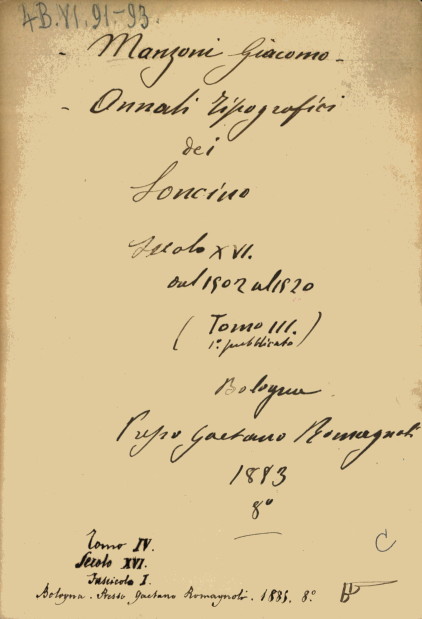 4B.VI.91-93.
- Manzoni Giacomo -
- Annali Tipografici
dei
Soncino
Secolo XVI.
dal 1502 al 1520
( Tomo III. )
1º. pubblicato
Bologna
Presso Gaetano Romagnoli
1883
8º
Tomo IV.
Secolo XVI.
Fascicolo I.
Bologna. Presso Gaetano Romagnoli. 1885. 8º.
C